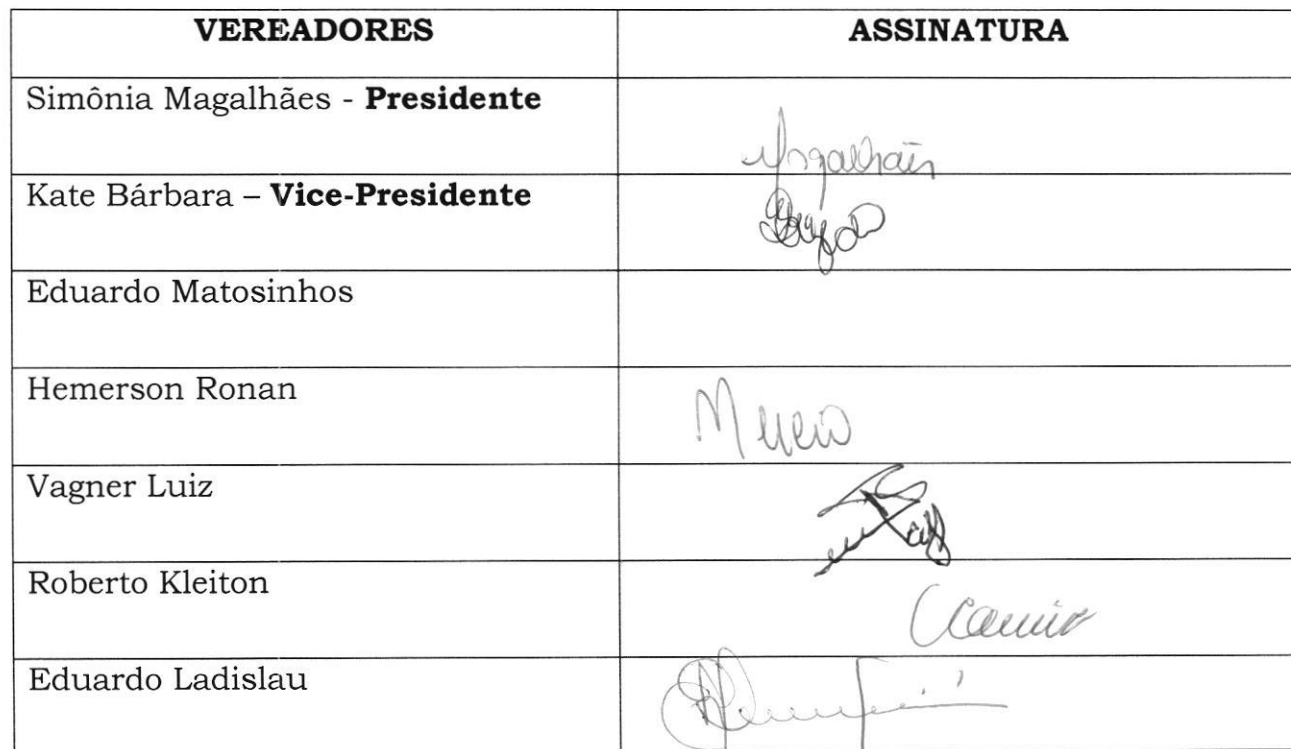 VEREADORES ASSINATURA
Simônia Magalhães - Presidente
Magalhães
Kate Bárbara – Vice-Presidente
Eduardo Matosinhos
Hemerson Ronan
Vagner Luiz
Roberto Kleiton
Eduardo Ladislau